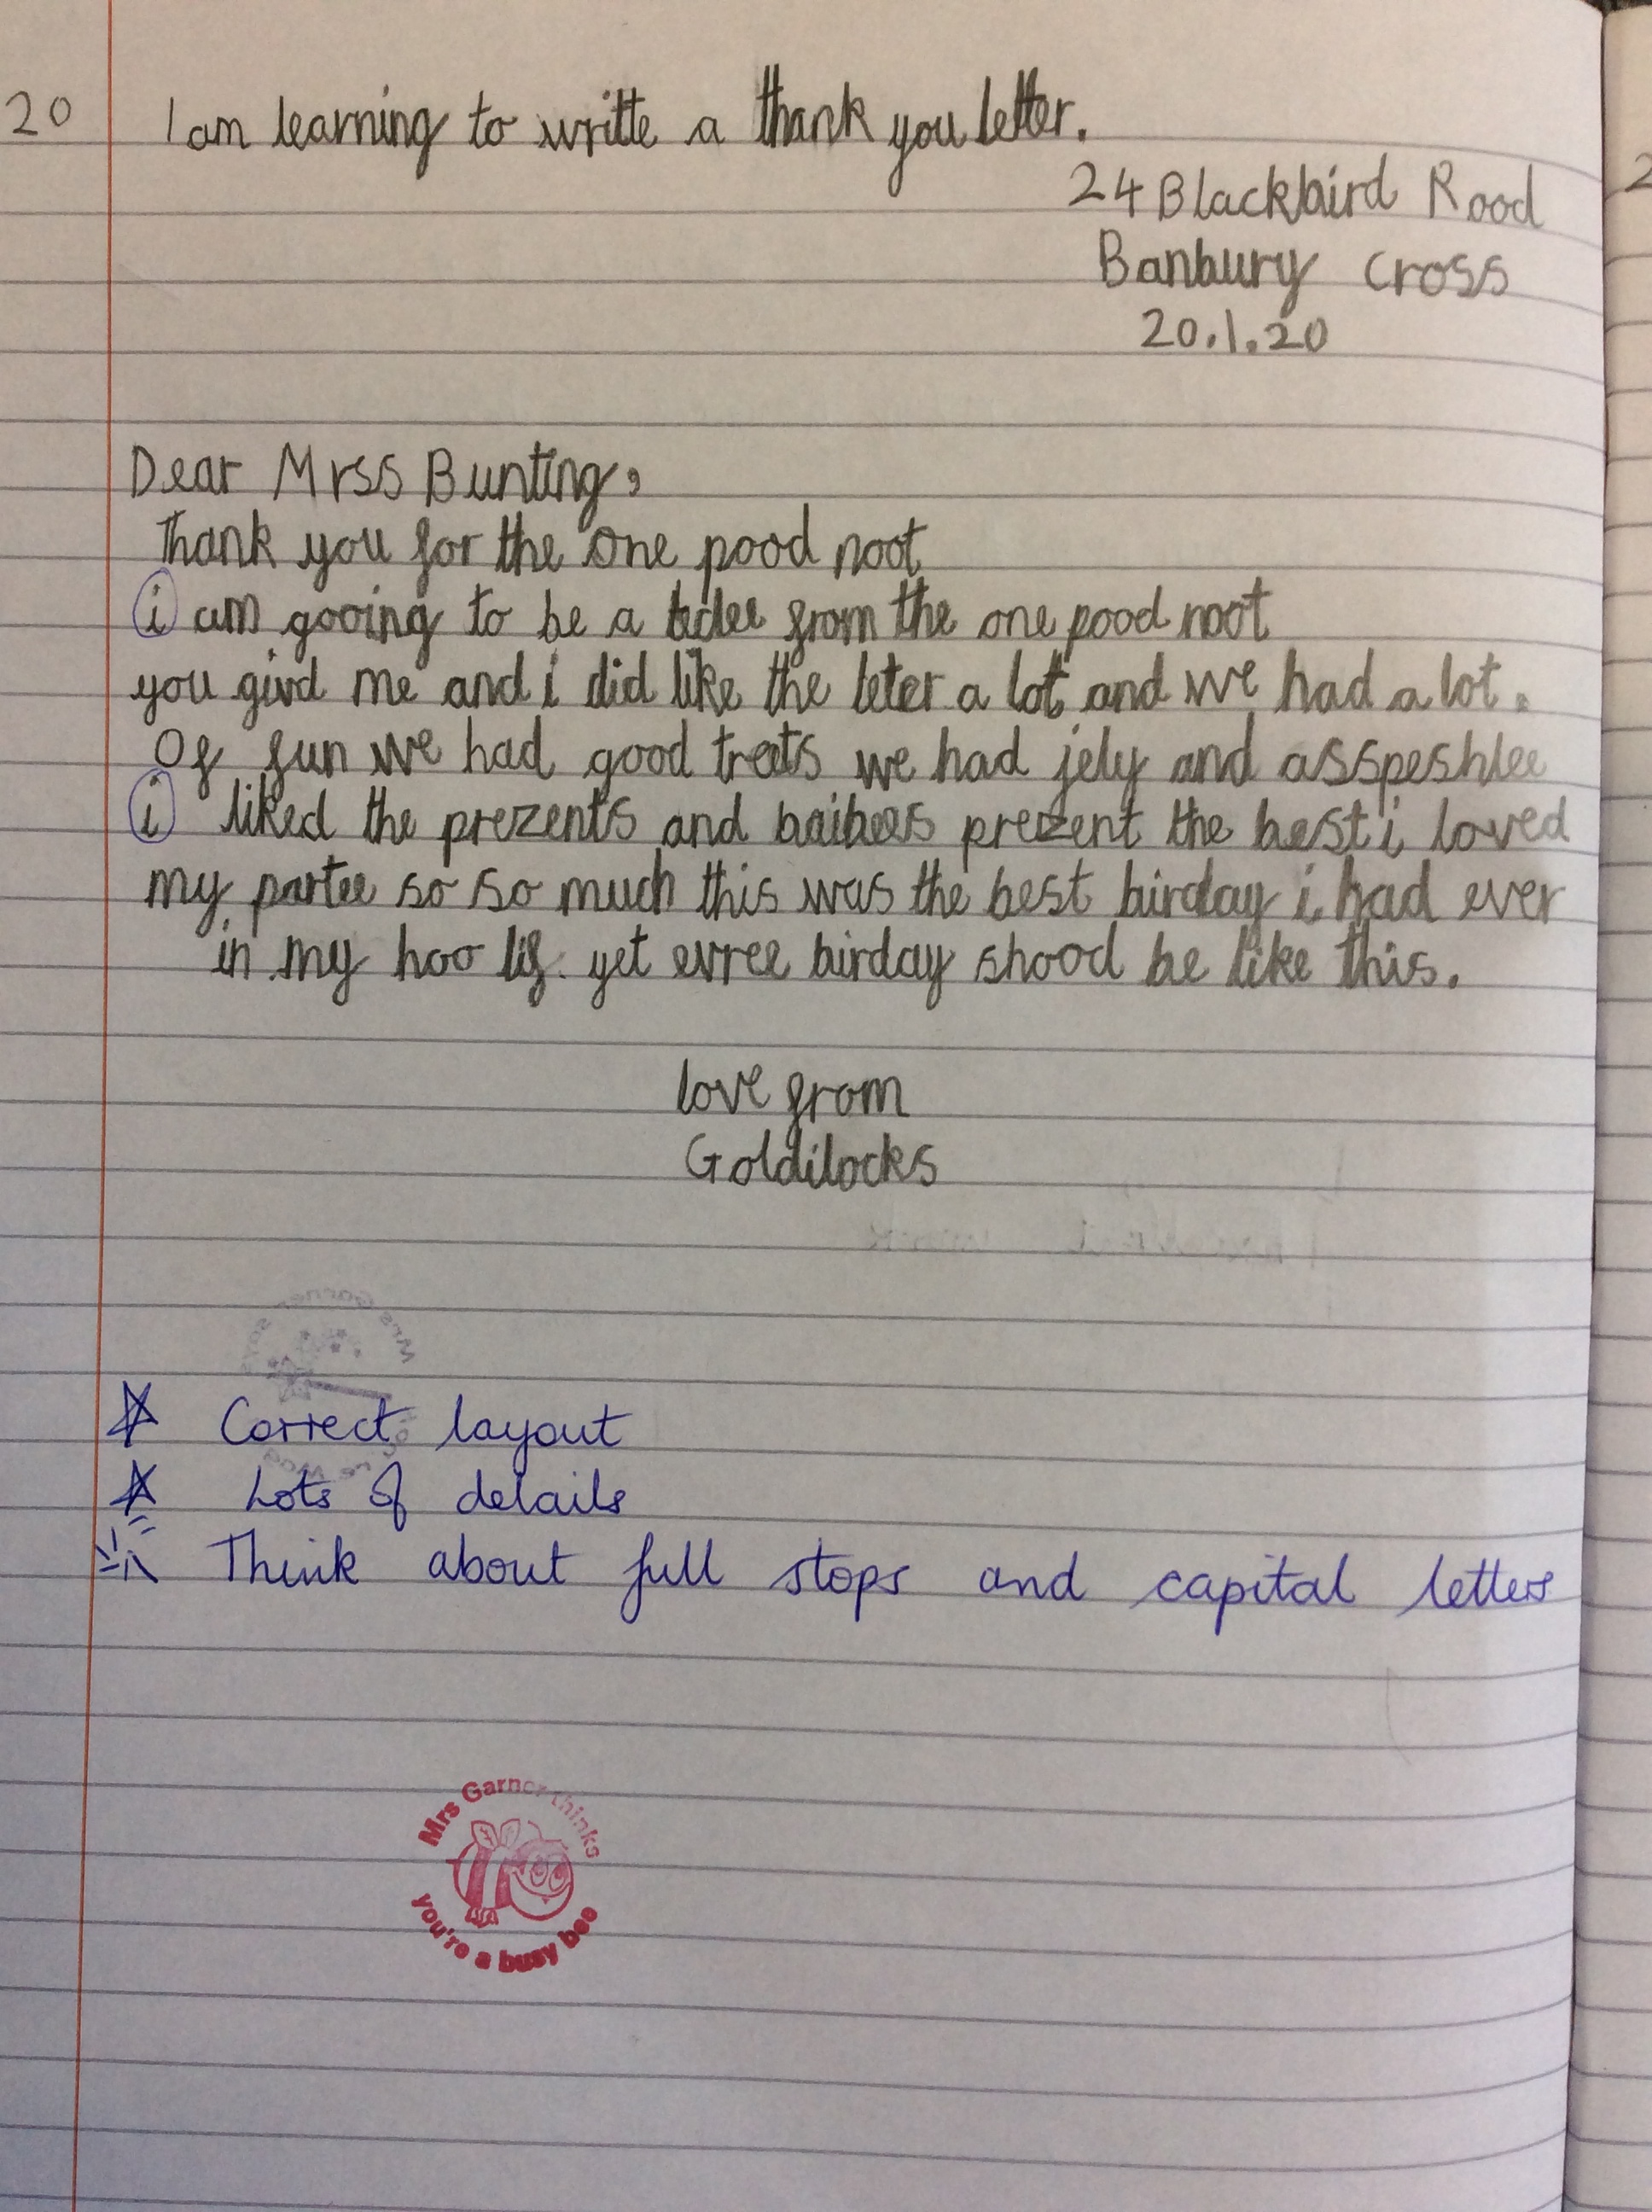 20 I am learning to writte a thank you letter.
24 Blackbird Rood
Banbury Cross
20.1.20
Dear Mrss Bunting,
Thank you for the one pood noot
i am gooing to be a from the one pood noot
you givd me and i did like the leter a lot and we had a lot.
Of fun we had good treats we had jely and asspeshlee
i liked the prezents and prezent the best i loved
my partee so so much this was the best birday i had ever
in my hoo lif. yet evree birday shood be like this.
love from
Goldilocks
Correct layout
Lots of details
Think about full stops and capital letters
Mrs Garner thinks
you're a busy bee